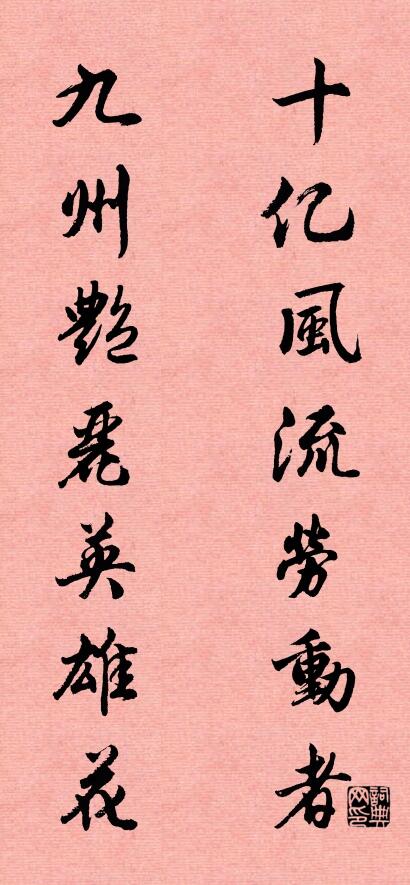 十亿風流勞動者
九州艷麗英雄花
詞典网印